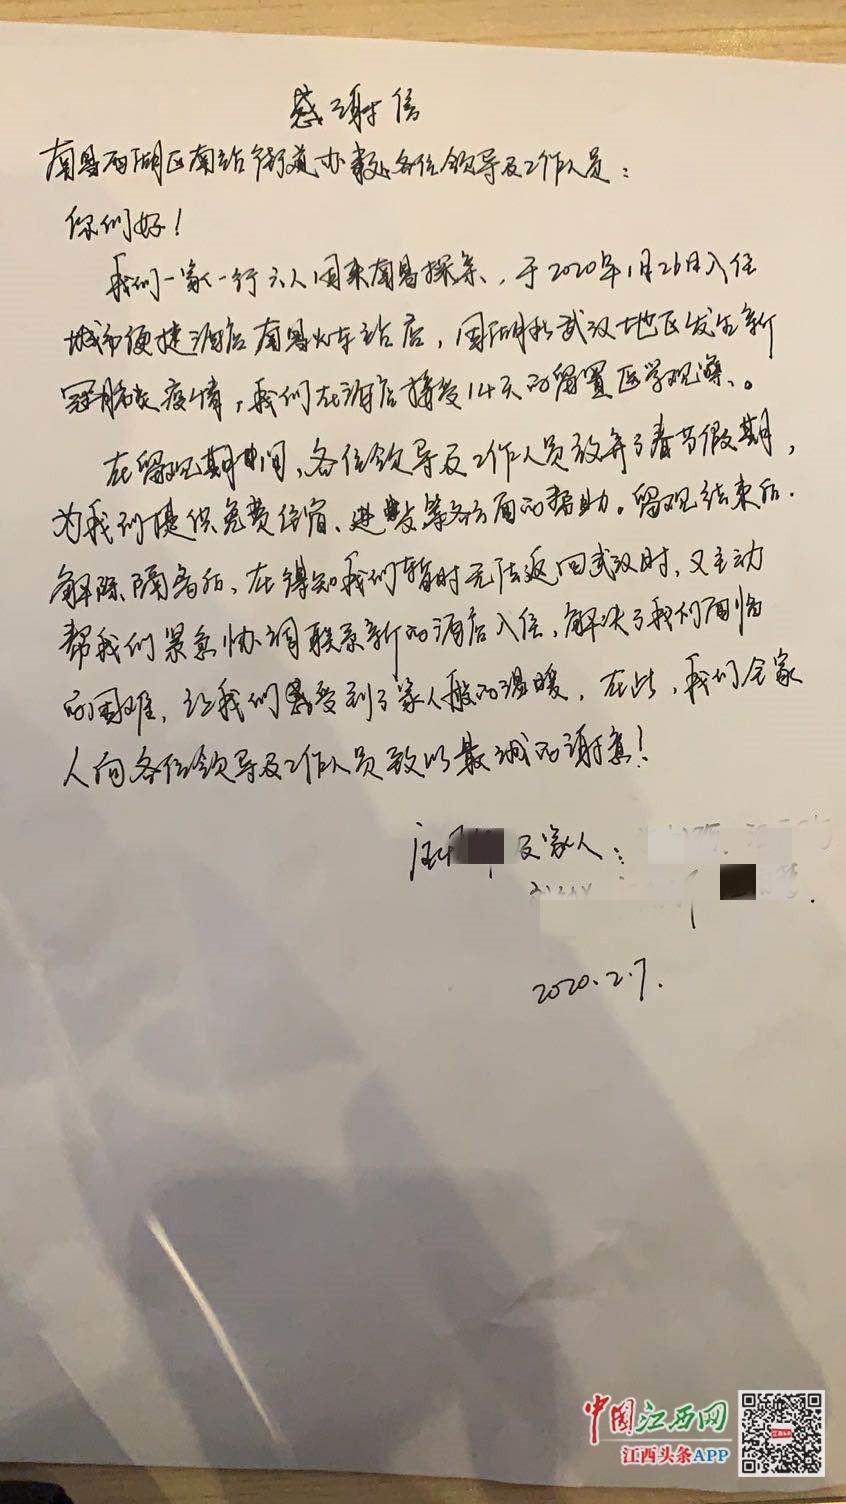 感谢信
南昌西湖区南站街道办事处各位领导及工作人员：
你们好！
我们一家一行六人因来南昌探亲、于2020年1月26日入住
城市便捷酒店南昌火车站店，因湖北武汉地区发生新
冠肺炎疫情，我们在酒店接受14天的留置医学观察。
在留观期间，各位领导及工作人员放弃了春节假期，
为我们提供免费住宿、进餐等各方面的帮助。留观结束后.
解除隔离后、在得知我们暂时无法返回武汉时、又主动
帮我们紧急协调联系新的酒店入住，解决了我们面临
的困难，让我们感受到了家人般的温暖，在此，我们全家
人向各位领导及工作人员致以最诚的谢意！
及家人：
2020.2.7.
中国江西网
江西头条APP